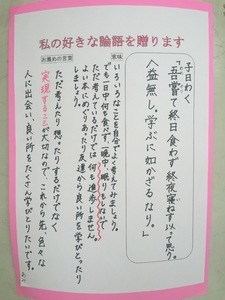 私の好きな論語を贈ります
子曰わく、
「吾嘗て終日食わず終夜寝ねず以て思う。
益無し。学ぶに如かざるなり。」
意味
いろいろなことを自分でよく考えてみましょう。
でも一日中何も食べず、一晩中、眠りもしないで
ただ考えているだけでは何も進歩しません。
よい本にめぐりあったり友達から良い所を学びとったり
しましょう。
お薦めの言葉
ただ考えたり想ったりするだけでなく
実現することが大切なので、これから先、色々な
人に出会い、良い所をたくさん学びとりたいです。